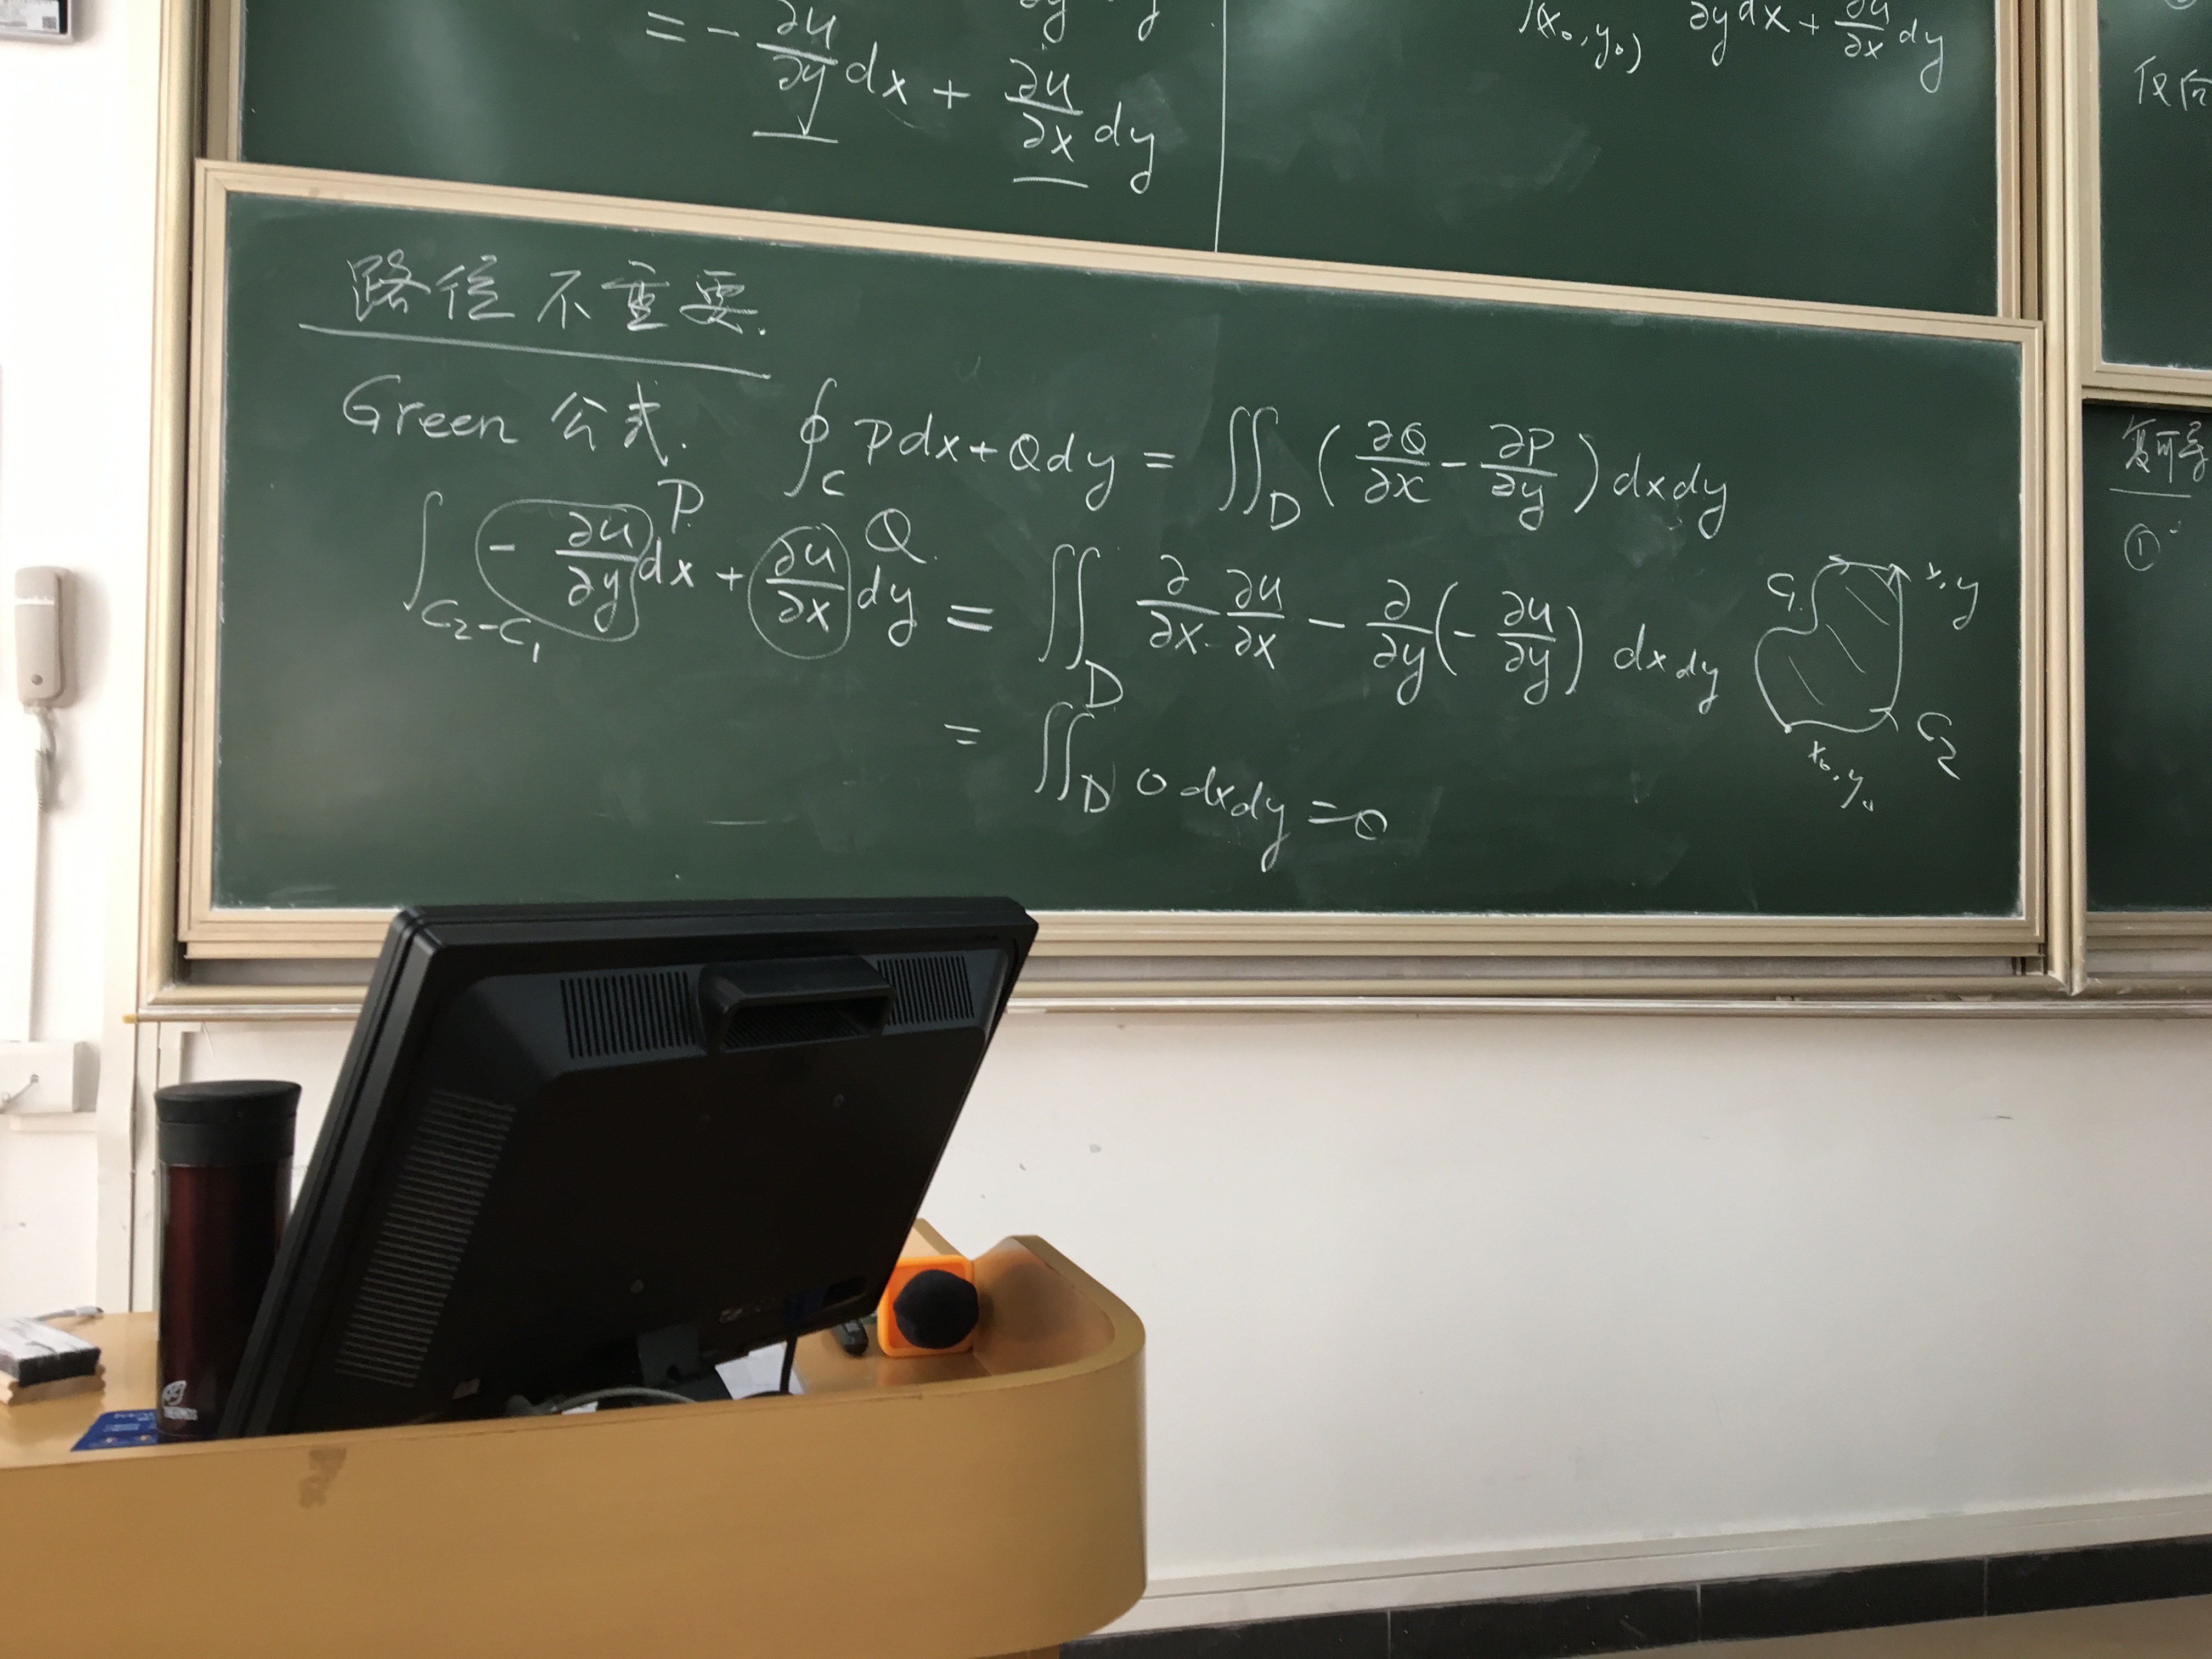 = - ∂u/∂y dx + ∂u/∂x dy
(x₀, y₀) ∂y dx + ∂u/∂x dy
路径不重要.
Green 公式. ∮_C Pdx + Qdy = ∬_D (∂Q/∂x - ∂P/∂y) dxdy
P Q
∫_{C₂-C₁} - ∂u/∂y dx + ∂u/∂x dy = ∬_D ∂/∂x ∂u/∂x - ∂/∂y (- ∂u/∂y) dxdy
= ∬_D 0 dxdy = 0
C₁ x, y
C₂
x₀, y₀
复可导
①
THERMOS